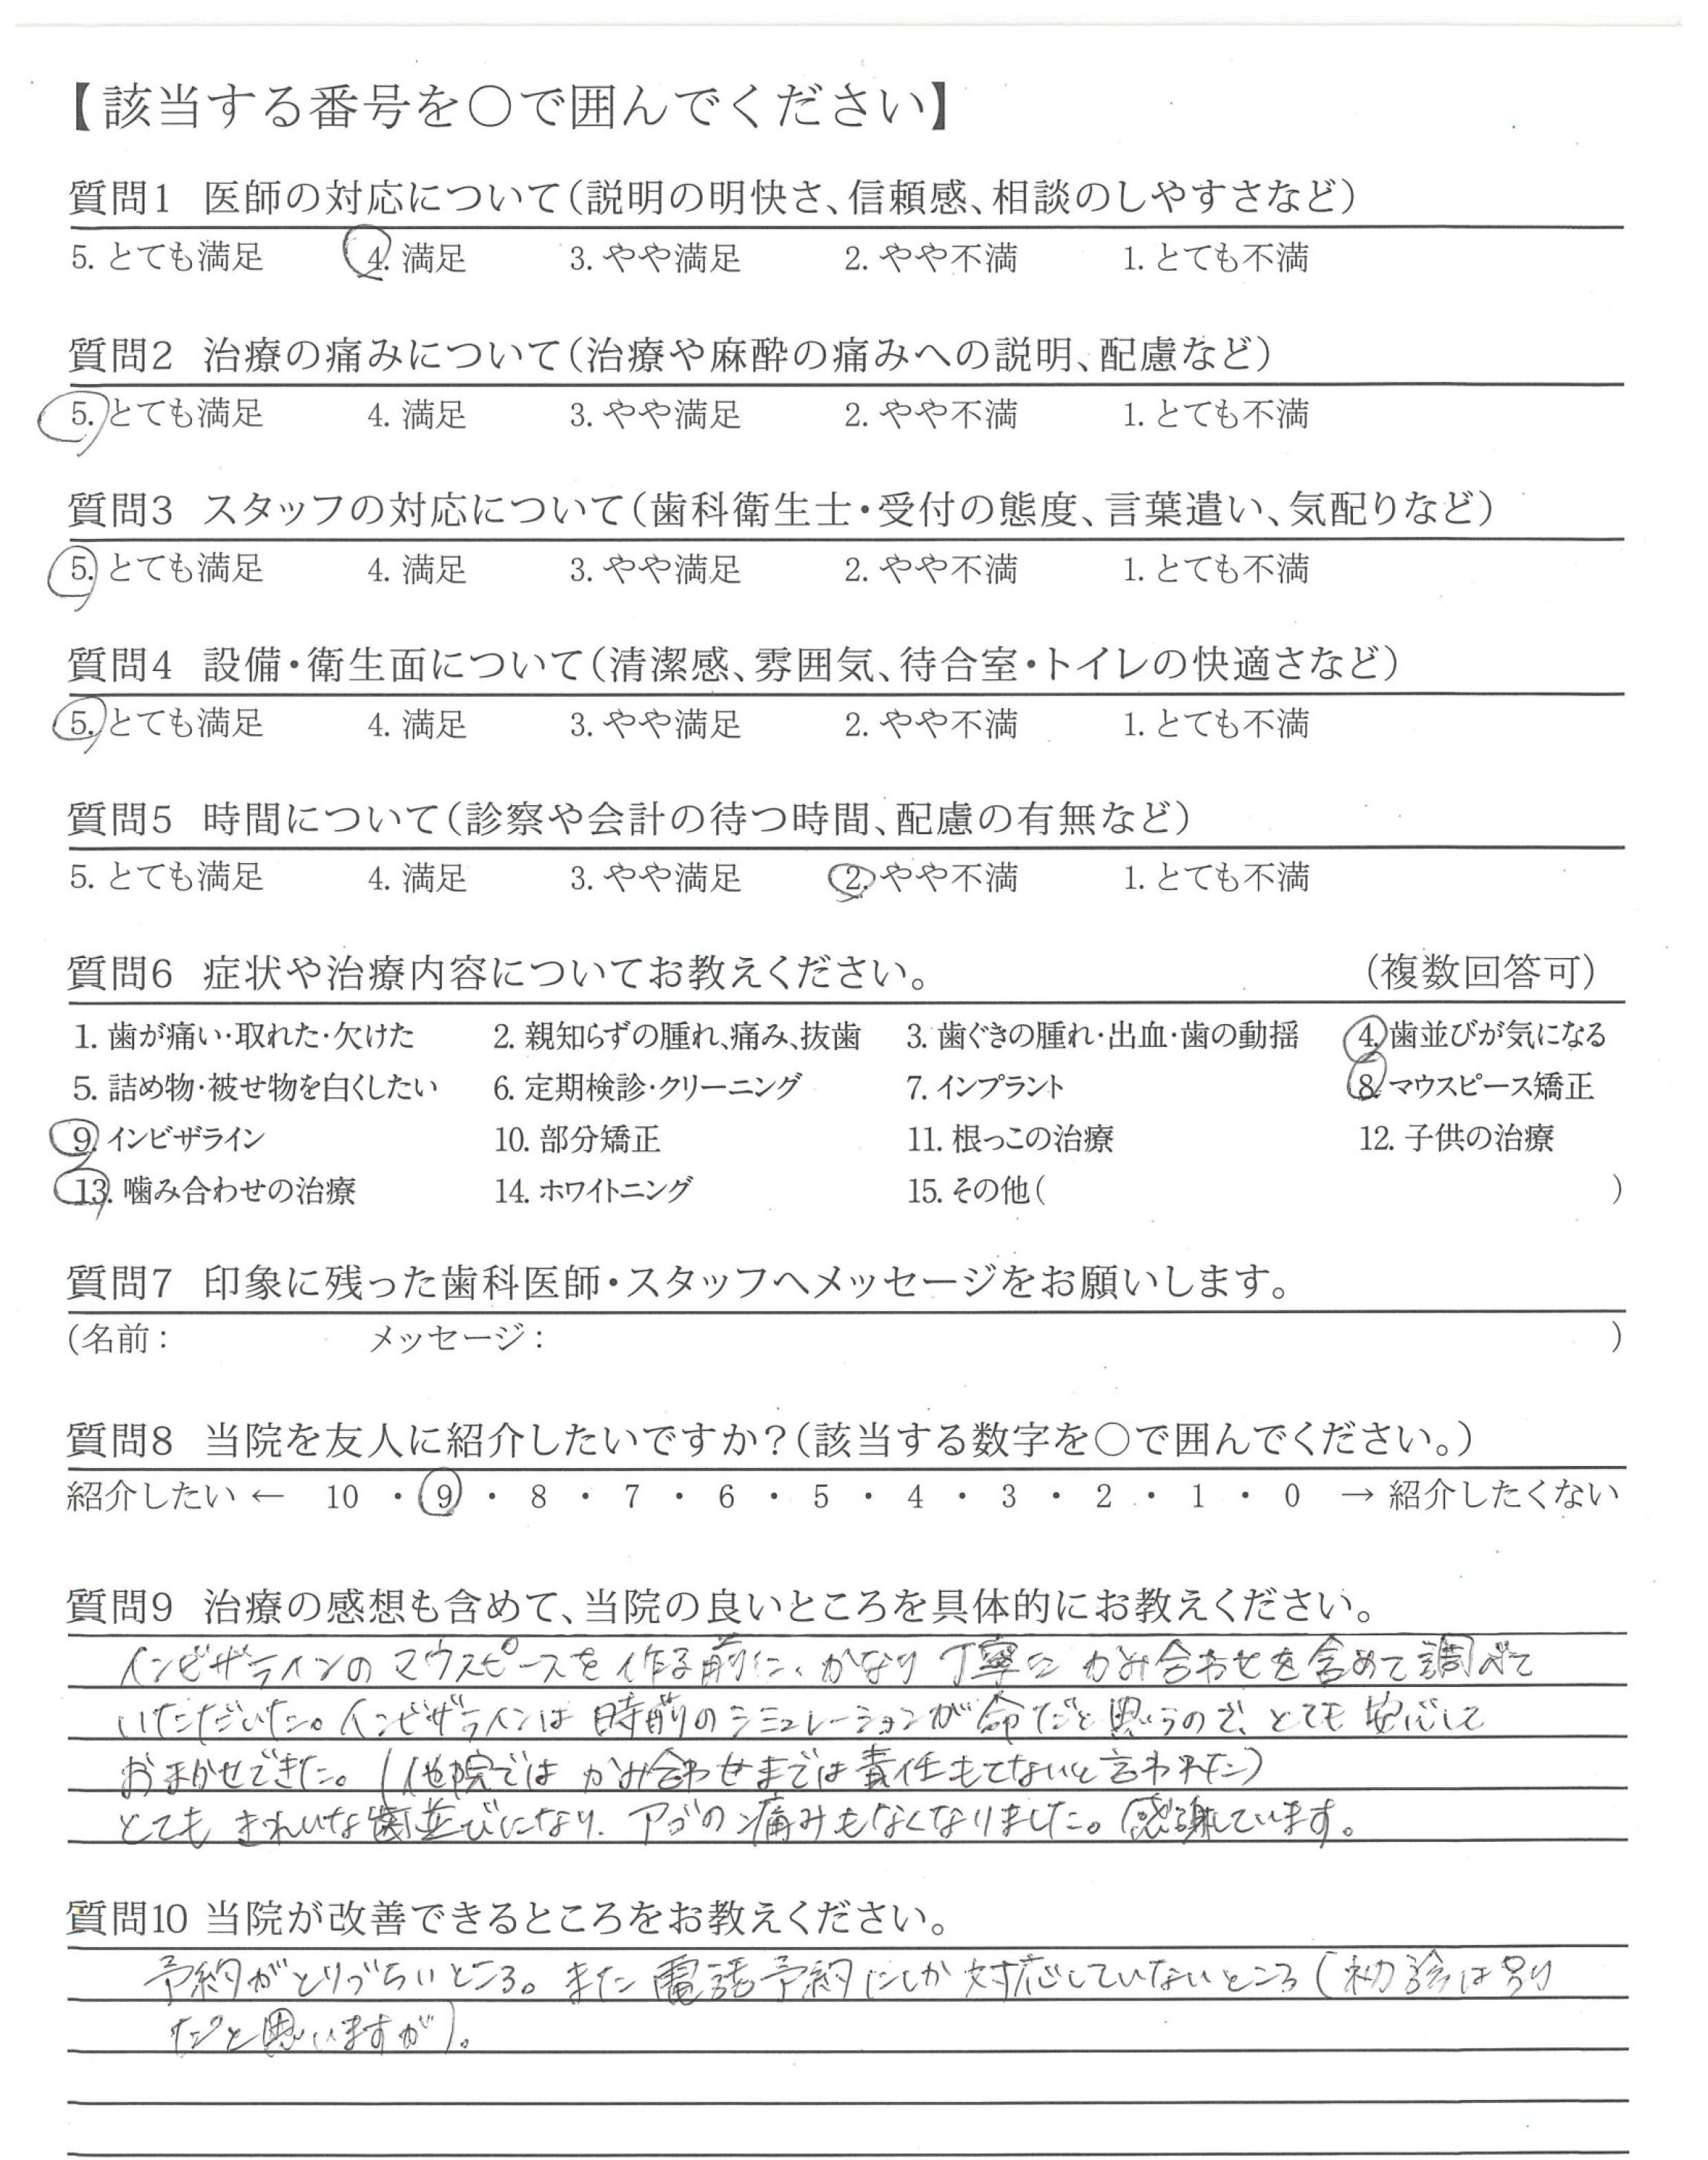 【該当する番号を○で囲んでください】
質問1 医師の対応について（説明の明快さ、信頼感、相談のしやすさなど）
5. とても満足 4. 満足 3. やや満足 2. やや不満 1. とても不満
質問2 治療の痛みについて（治療や麻酔の痛みへの説明、配慮など）
5. とても満足 4. 満足 3. やや満足 2. やや不満 1. とても不満
質問3 スタッフの対応について（歯科衛生士・受付の態度、言葉遣い、気配りなど）
5. とても満足 4. 満足 3. やや満足 2. やや不満 1. とても不満
質問4 設備・衛生面について（清潔感、雰囲気、待合室・トイレの快適さなど）
5. とても満足 4. 満足 3. やや満足 2. やや不満 1. とても不満
質問5 時間について（診察や会計の待つ時間、配慮の有無など）
5. とても満足 4. 満足 3. やや満足 2. やや不満 1. とても不満
質問6 症状や治療内容についてお教えください。 （複数回答可）
1. 歯が痛い・取れた・欠けた 2. 親知らずの腫れ、痛み、抜歯 3. 歯ぐきの腫れ・出血・歯の動揺 4. 歯並びが気になる
5. 詰め物・被せ物を白くしたい 6. 定期検診・クリーニング 7. インプラント 8. マウスピース矯正
9. インビザライン 10. 部分矯正 11. 根っこの治療 12. 子供の治療
13. 噛み合わせの治療 14. ホワイトニング 15. その他（ ）
質問7 印象に残った歯科医師・スタッフへメッセージをお願いします。
（名前： メッセージ： ）
質問8 当院を友人に紹介したいですか？（該当する数字を○で囲んでください。）
紹介したい ← 10 ・ 9 ・ 8 ・ 7 ・ 6 ・ 5 ・ 4 ・ 3 ・ 2 ・ 1 ・ 0 → 紹介したくない
質問9 治療の感想も含めて、当院の良いところを具体的にお教えください。
インビザラインのマウスピースを作る前に、かなり丁寧に かみ合わせを含めて調べて
いただいた。インビザラインは 時前のシミュレーションが命だと思うので、とても 安心して
おまかせできた。（他院では かみ合わせまでは責任もてないと言われた）
とても きれいな歯並びになり、アゴの痛みもなくなりました。感謝しています。
質問10 当院が改善できるところをお教えください。
予約がとりづらいところ。また 電話予約にしか対応していないところ（初診は別
だと思いますが）。